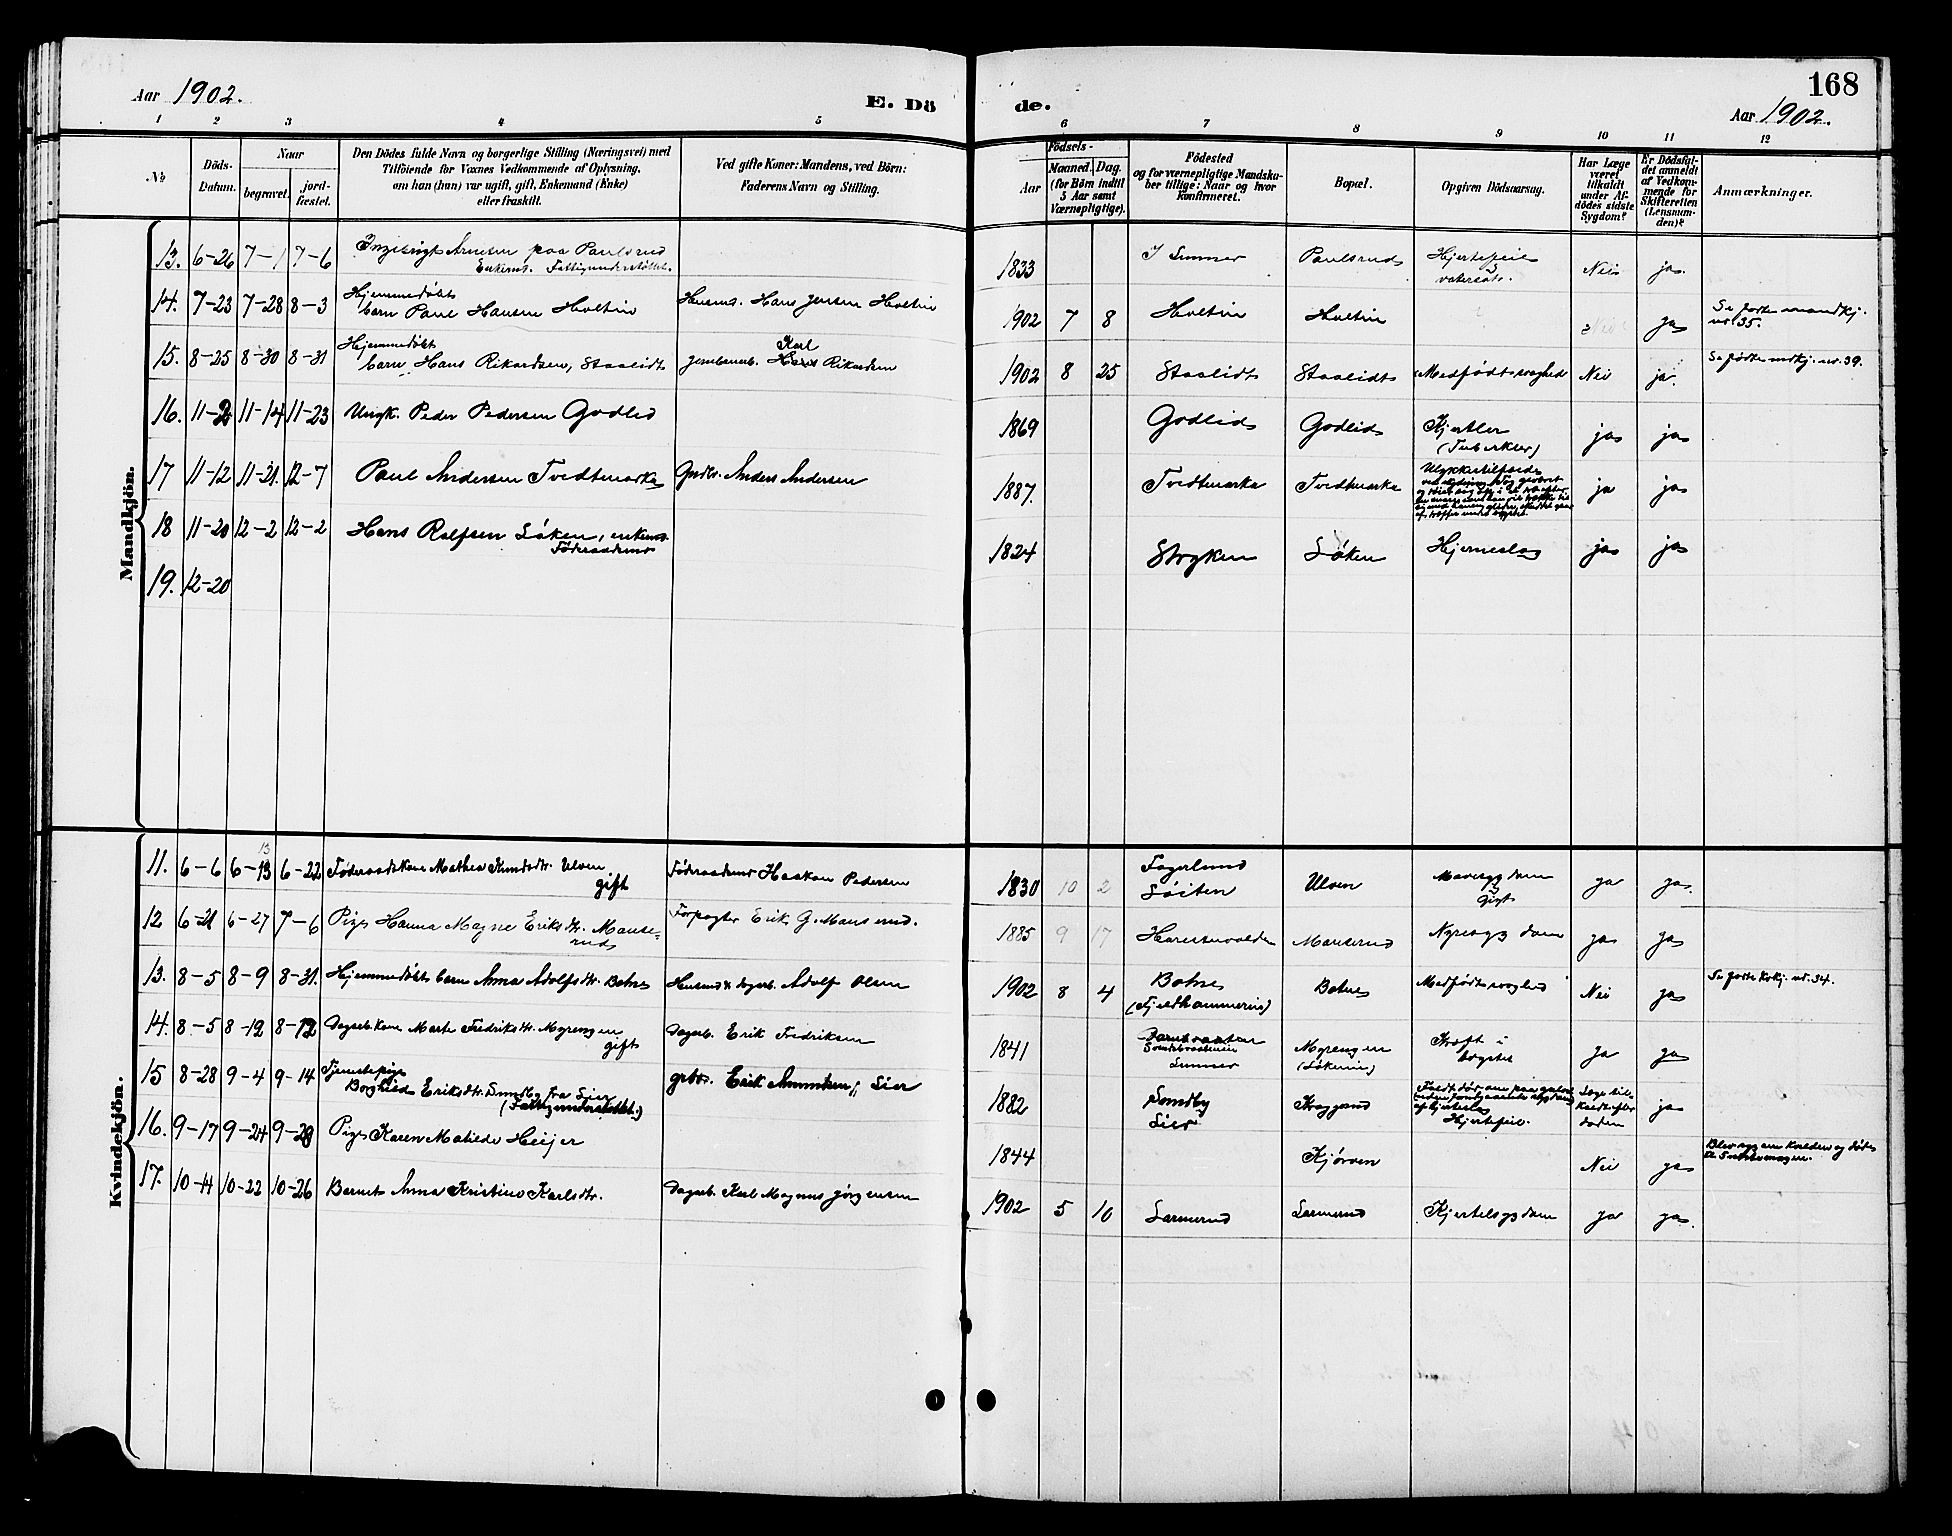 Aar 1902.
E. Dö
de.
168
Aar 1902.
1 2 3 4 5 6 7 8 9 10 11 12
No
Döds-Datum.
Naar
begravet.
jord-fæstet.
Den Dödes fulde Navn og borgerlige Stilling (Næringsvei) med
Tilföiende for Voxnes Vedkommende af Oplysning,
om han (hun) var ugift, gift, Enkemand (Enke)
eller fraskilt.
Ved gifte Koner: Mandens, ved Börn:
Faderens Navn og Stilling.
Födsels-
Aar
Maaned. Dag.
(for Börn indtil
5 Aar samt
Værnepligtige).
Födested
og for værnepligtige Mandska-
ber tillige: Naar og hvor
konfirmeret.
Bopæl.
Opgiven Dödsaarsag.
Har Læge
været
tilkaldt
under Af-
dödes sidste
Sygdom?
Er Dödsfal-
det anmeldt
af Vedkom-
mende for
Skifteretten
(Lensman-
den)?
Anmærkninger.
Mandkjön.
13. 6-26 7-1 7-6 Ingebrigt Arnesen paa Paulsrud 1833 Paulsrud Hjertefeil Nei ja.
Enkemd. Fattigunderstøttet.
14. 7-23 7-28 8-3 Hjemmedøbt
barn Paul Hansen Holtin Husmd. Hans Jensen Holtin 1902 7 8 Holtin Holtin Nei ja Se fødte mandkj.
nr. 35.
15. 8-25 8-30 8-31 Hjemmedøbt
barn Hans Rikardsen, Staalidt Jernbanearb. Karl Rikardsen 1902 8 25 Staalidt Staalidt Medfødt svaghed Nei ja. Se fødte mdkj. nr. 39.
16. 11-2 11-14 11-23 Ungk. Peder Pedersen Godlid 1869 Godlid Godlid Kjertler ja ja
(Tuberkler)
17 11-12 11-21. 12-7 Paul Andersen Tvedtmarka Gndbr. Anders Andersen 1887. Tvedtmarka Tvedtmarka Ulykkestilfælde ja ja
18 11-20 12-2 12-2 Hans Rolfsen Løken, enkemd. 1824 Stryken Løken Hjerneslag ja ja
Føderaadsmd
19. 12-20
Kvindekjön.
11. 6-6 6-13 6-22 Føderaadskone Mathea Knudsdtr. Ulven Føderaadsmd Haakon Pedersen 1830 10 2 Fagerlund Ulven Mavesygdom ja ja.
gift Løiten Gigt
12 6-21 6-27 7-6 Pige Hanna Magne Eriksdtr. Manse- Forpagter Erik G. Mansrud. 1885 9 17 Manserud Nyresygdom ja ja
rud
13. 8-5 8-9 8-31. Hjemmedøbt barn Anna Adolfsdtr. Bohns Husmd & dagarb. Adolf Olsen 1902 8 4 Bohns Bohns Medfødt svaghed Nei ja Se fødte Kvkj. nr. 34.
14. 8-5 8-12 8-12 Dagarb.kone Marte Fredriksdtr. Myrengen Dagarb. Erik Fredriksen 1841 Myrengen Kræft i ja ja
gift (Løkenei) brystet
15 8-28 9-4 9-14 Tjenestepige
Borghild Eriksdtr. Sundby fra Lier gbr. Erik Amundsen, Lier 1882 Sundby Kraggerud Læge til- ja
(Fattigunderstøttet.) Lier Hjertefeil. kaldt efter
døden
16. 9-17 9-24 9-28 Pige Karen Matilde Heijer 1844 Kjørven Nei ja Blev syg om kvelden og døde
17. 10-14 10-22 10-26 Barnet Anna Kristine Karlsdtr. Dagarb. Karl Magnus Jørgensen 1902 5 10 Larmerud Larmerud Kjertelsygdom ja ja.